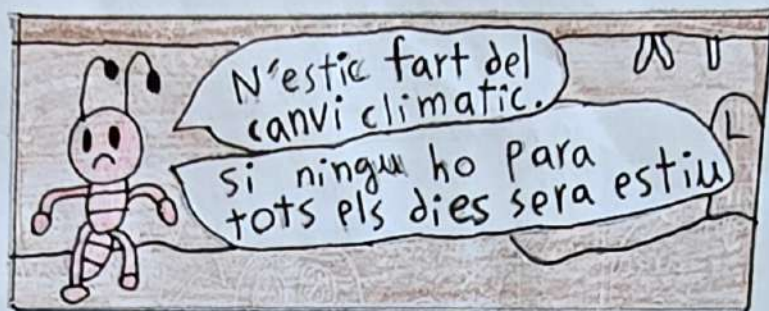 N'estic fart del
canvi climatic.
si ningu ho para
tots els dies sera estiu